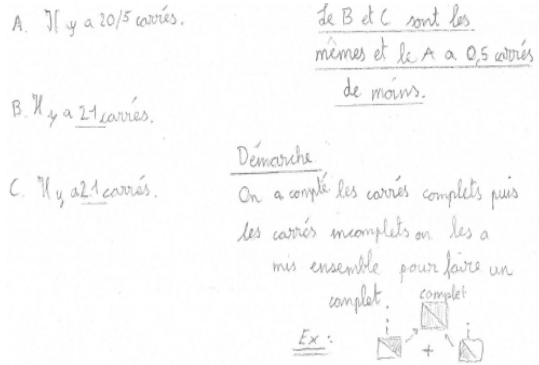 A. Il y a 20/5 carrés.
B. Il y a 21 carrés.
C. Il y a 21 carrés.
Le B et C sont les
mêmes et le A a 0,5 carrés
de moins.
Démarche
On a compté les carrés complets puis
les carrés incomplets on les a
mis ensemble pour faire un
complet.
complet
Ex :
+